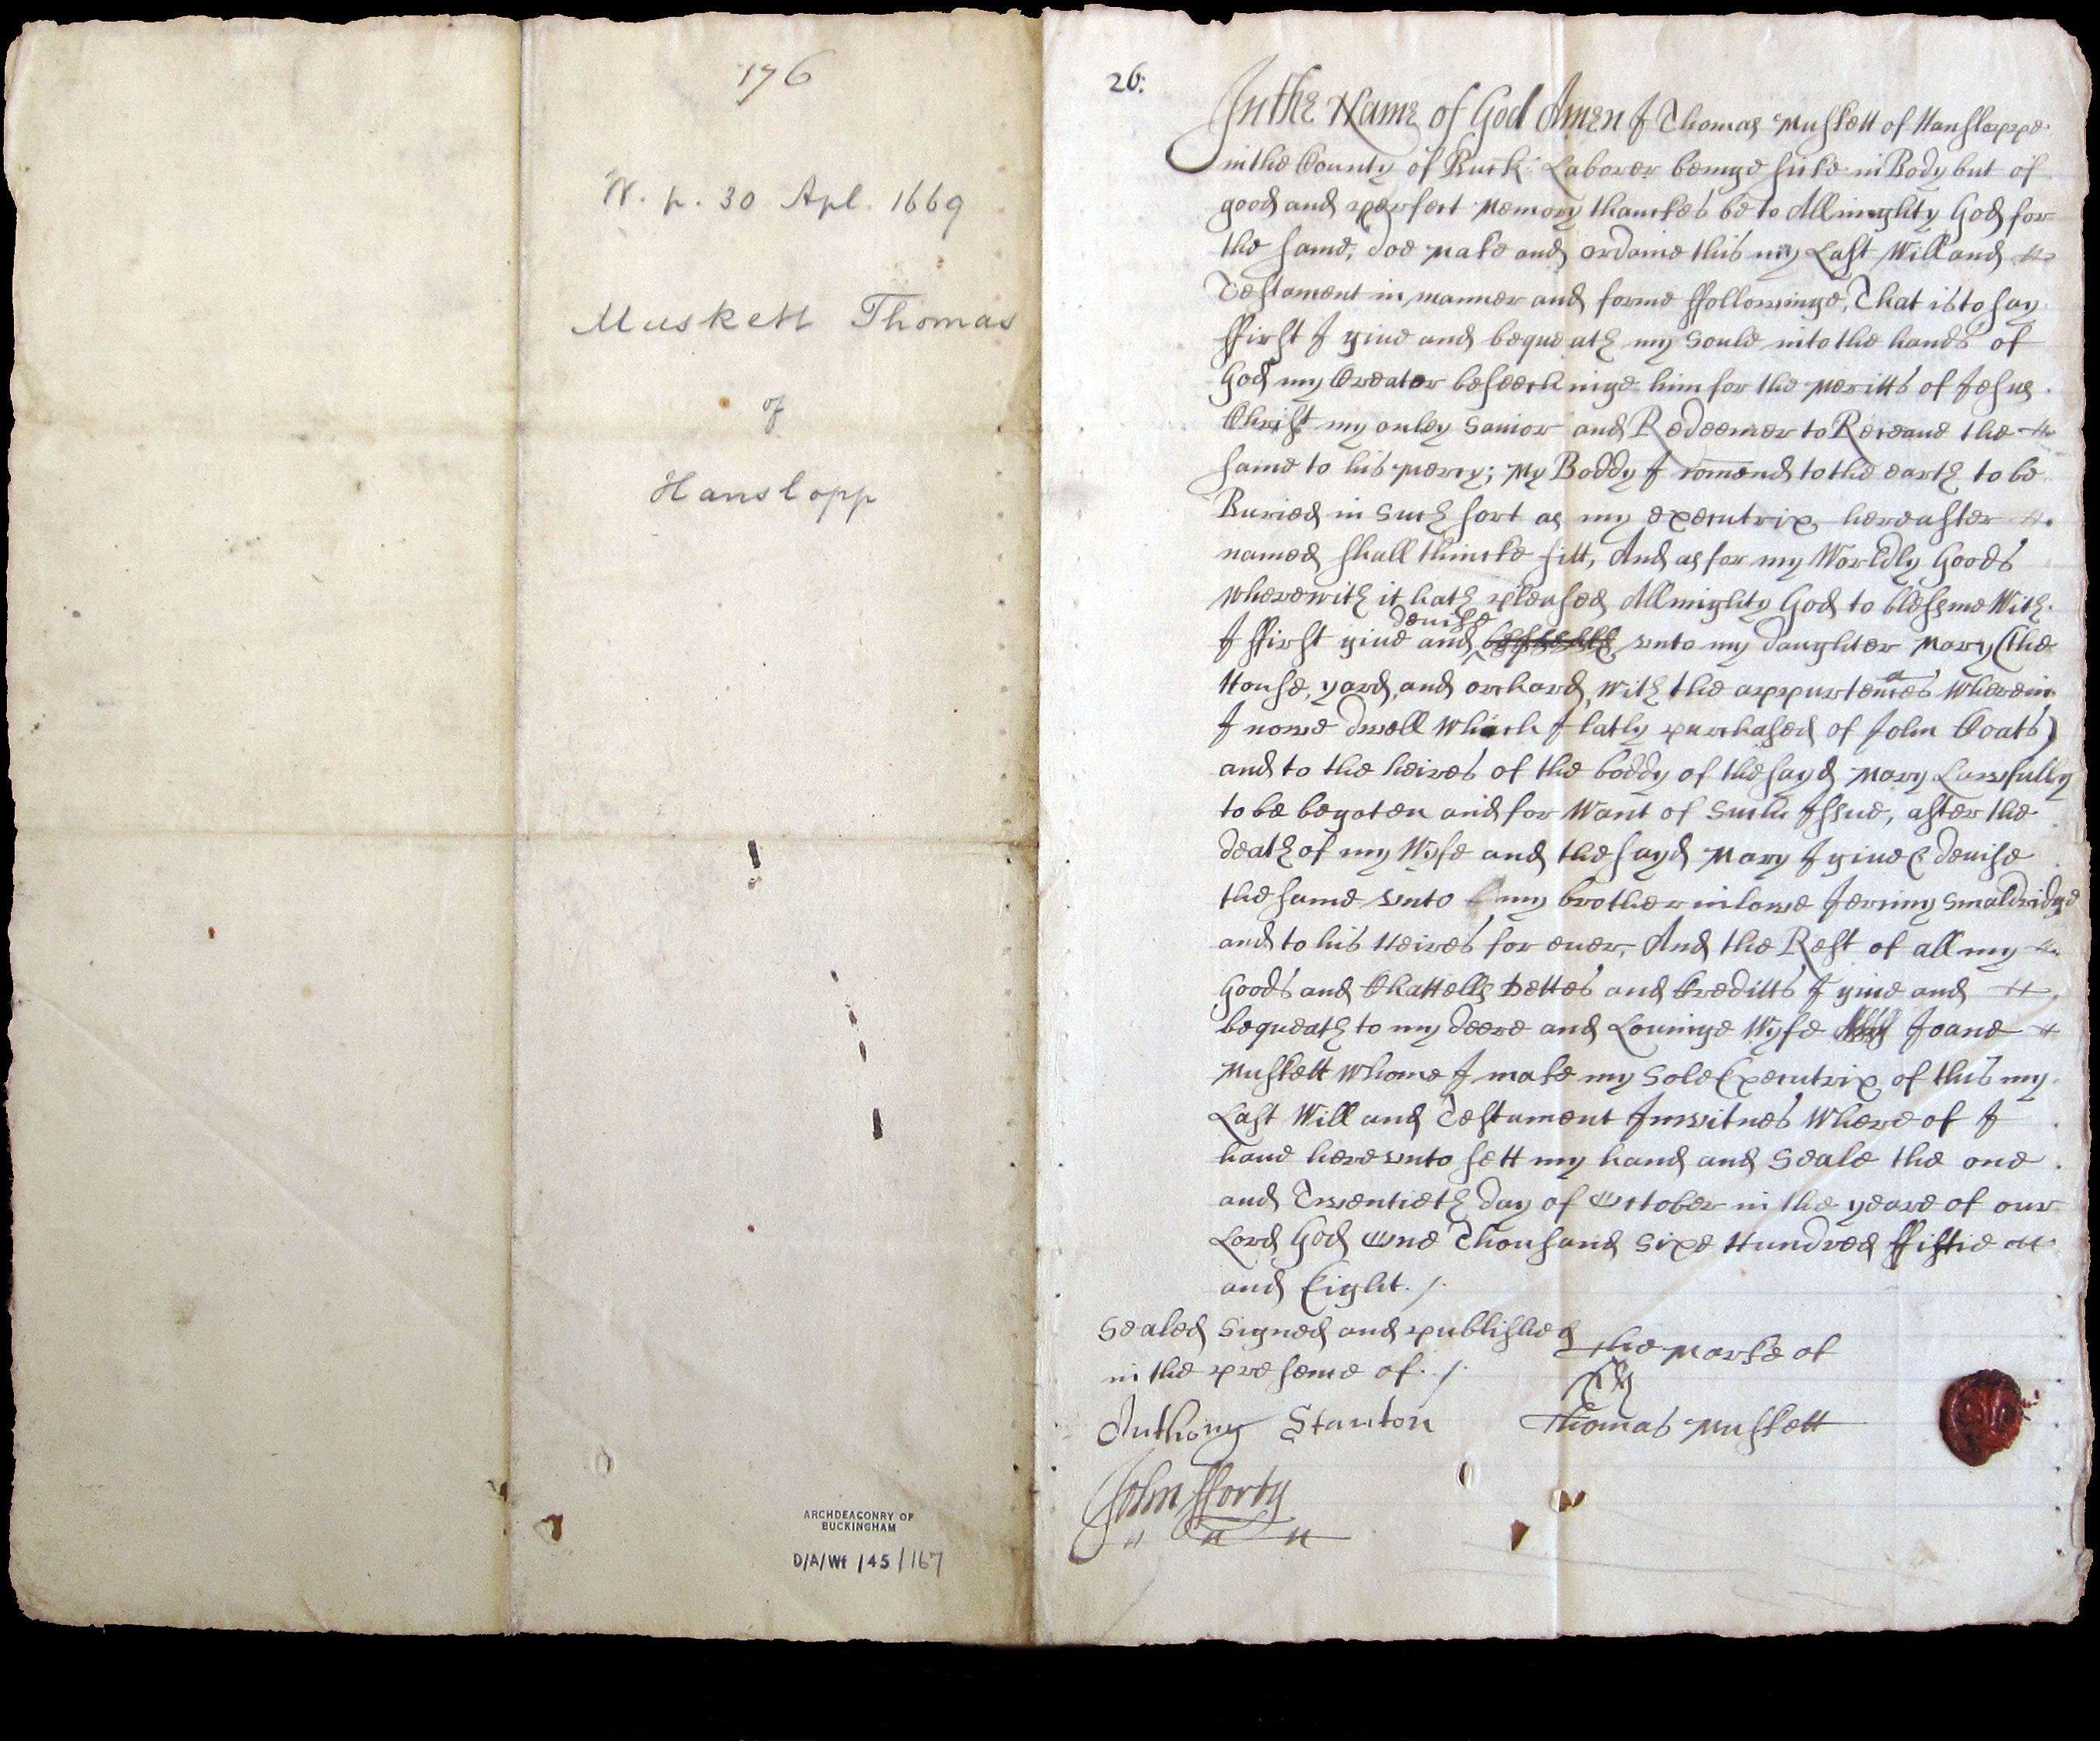 176
W. p. 30 Apl. 1669
Muskett Thomas
of
Hanslopp
ARCHDEACONRY OF
BUCKINGHAM
D/A/Wf /45/167
26:
In the Name of God Amen I Thomas Muskett of Hanslappe
in the County of Buck: Laborer beinge sicke in Body but of
good and perfect Memory thanckes be to Allmighty God for
the same, doe make and ordaine this my Last Will and
Testament in manner and forme ffollowinge, That is to say
ffirst I giue and bequeath my Soule into the hands of
God my Creator beseechinge him for the Meritts of Jesus
Christ my onley Sauior and Redeemer to Receaue the
same to his Mercy; My Boddy I comend to the earth to be
Buried in Such sort as my executrix hereafter
named shall thincke fitt, And as for my Worldly Goods
Wherewith it hath pleased Allmighty God to blesse me With
deuise
I ffirst giue and bequeath vnto my daughter Mary (the
House, yard, and orchard, With the appurtenaces Wherein
I nowe dwell Which I latly purchased of John Coats)
and to the heires of the boddy of the sayd Mary Lawfully
to be begoten and for Want of Such Issue, after the
death of my Wyfe and the sayd Mary I giue & deuise
the same vnto my brother in lawe Jermy Smaldridge
and to his Heires for euer, And the Rest of all my
Goods and Chattells Dettes and Creditts I giue and
bequeath to my deere and Louinge Wyfe Joane
Muskett Whome I make my Sole Executrix of this my
Last Will and Testament In witnes Where of I
haue herevnto sett my hand and Seale the one
and Twentieth day of October in the yeare of our
Lord God One Thousand Sixe Hundred ffiftie
and Eight. /.
Sealed Signed and published
in the presence of. /.
the Marke of
Thomas Muskett
Anthony Stanton
John Fforty